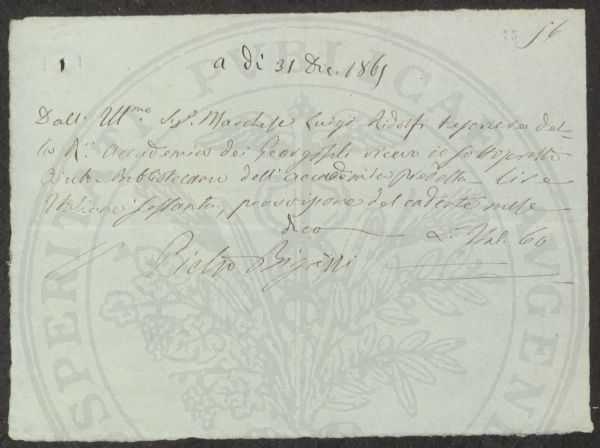 1 56
a dì 31 Dic. 1865
Dall' Ill.mo Sig.r Marchese Luigi Ridolfi Tesoriere del-
la R.a Accademia dei Georgofili ricevo io sottoscritto
Aiuto-Bibliotecario dell'accademia predetta lire
Italiane sessanta, provvisione del cadente mese
dico L. Ital. 60
Pietro
PROSPERITATI PUBLICAE AUGENDAE